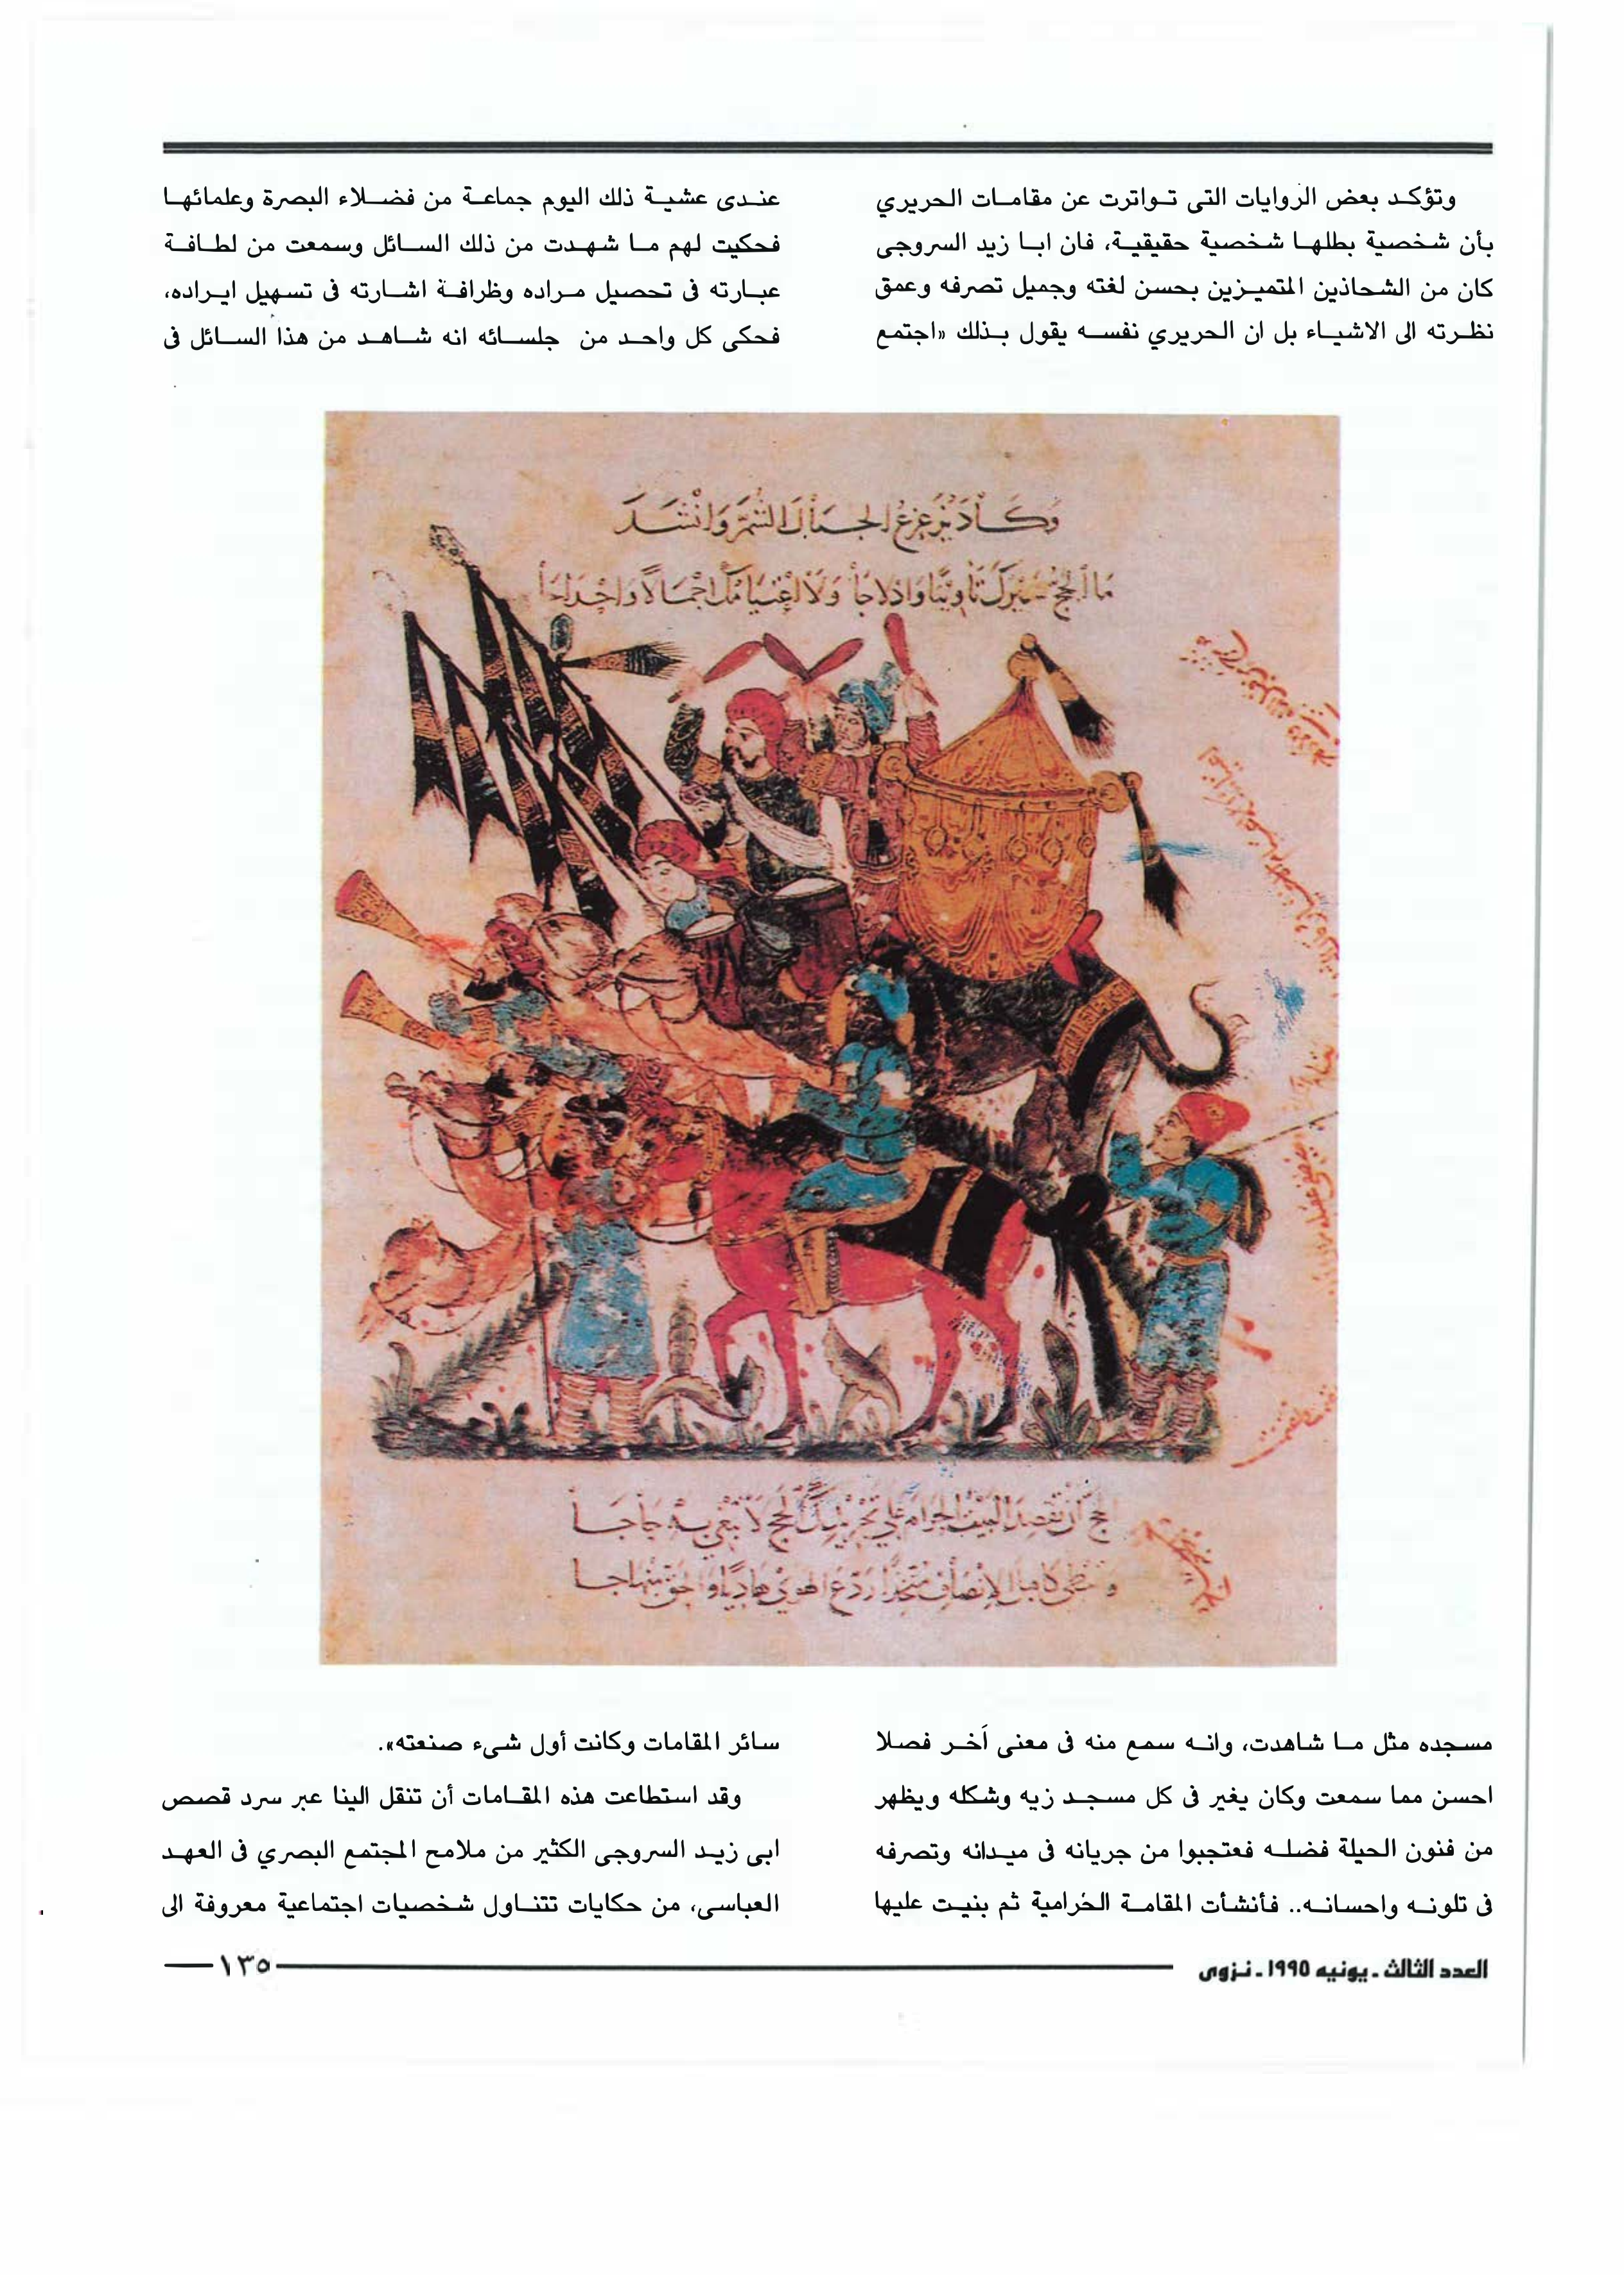 وتؤكد بعض الروايات التى تواترت عن مقامات الحريري
بأن شخصية بطلها شخصية حقيقية، فان ابا زيد السروجى
كان من الشحاذين المتميزين بحسن لغته وجميل تصرفه وعمق
نظرته الى الاشياء بل ان الحريري نفسه يقول بذلك «اجتمع
عندى عشية ذلك اليوم جماعة من فضلاء البصرة وعلمائها
فحكيت لهم ما شهدت من ذلك السائل وسمعت من لطافة
عبارته فى تحصيل مراده وظرافة اشارته فى تسهيل ايراده،
فحكى كل واحد من جلسائه انه شاهد من هذا السائل فى
وكاد يزعزع الجبال الشم وانشد
ما الحج سيرك تأويبا وادلاجا ولا اعتيامك اجمالا واحداجا
الحج أن تقصد البيت الحرام على تجريدك الحج لا تبغي به حاجا
وتمتطى كاهل الإنصاف متخذا ردع الهوى هاديا والحق منهاجا
مسجده مثل ما شاهدت، وانه سمع منه فى معنى آخر فصلا
احسن مما سمعت وكان يغير فى كل مسجد زيه وشكله ويظهر
من فنون الحيلة فضله فعتجبوا من جريانه فى ميدانه وتصرفه
فى تلونه واحسانه.. فأنشأت المقامة الحرامية ثم بنيت عليها
سائر المقامات وكانت أول شىء صنعته».
وقد استطاعت هذه المقامات أن تنقل الينا عبر سرد قصص
ابى زيد السروجى الكثير من ملامح المجتمع البصري فى العهد
العباسى، من حكايات تتناول شخصيات اجتماعية معروفة الى
العدد الثالث ـ يونيه ١٩٩٥ ـ نزوى
١٣٥